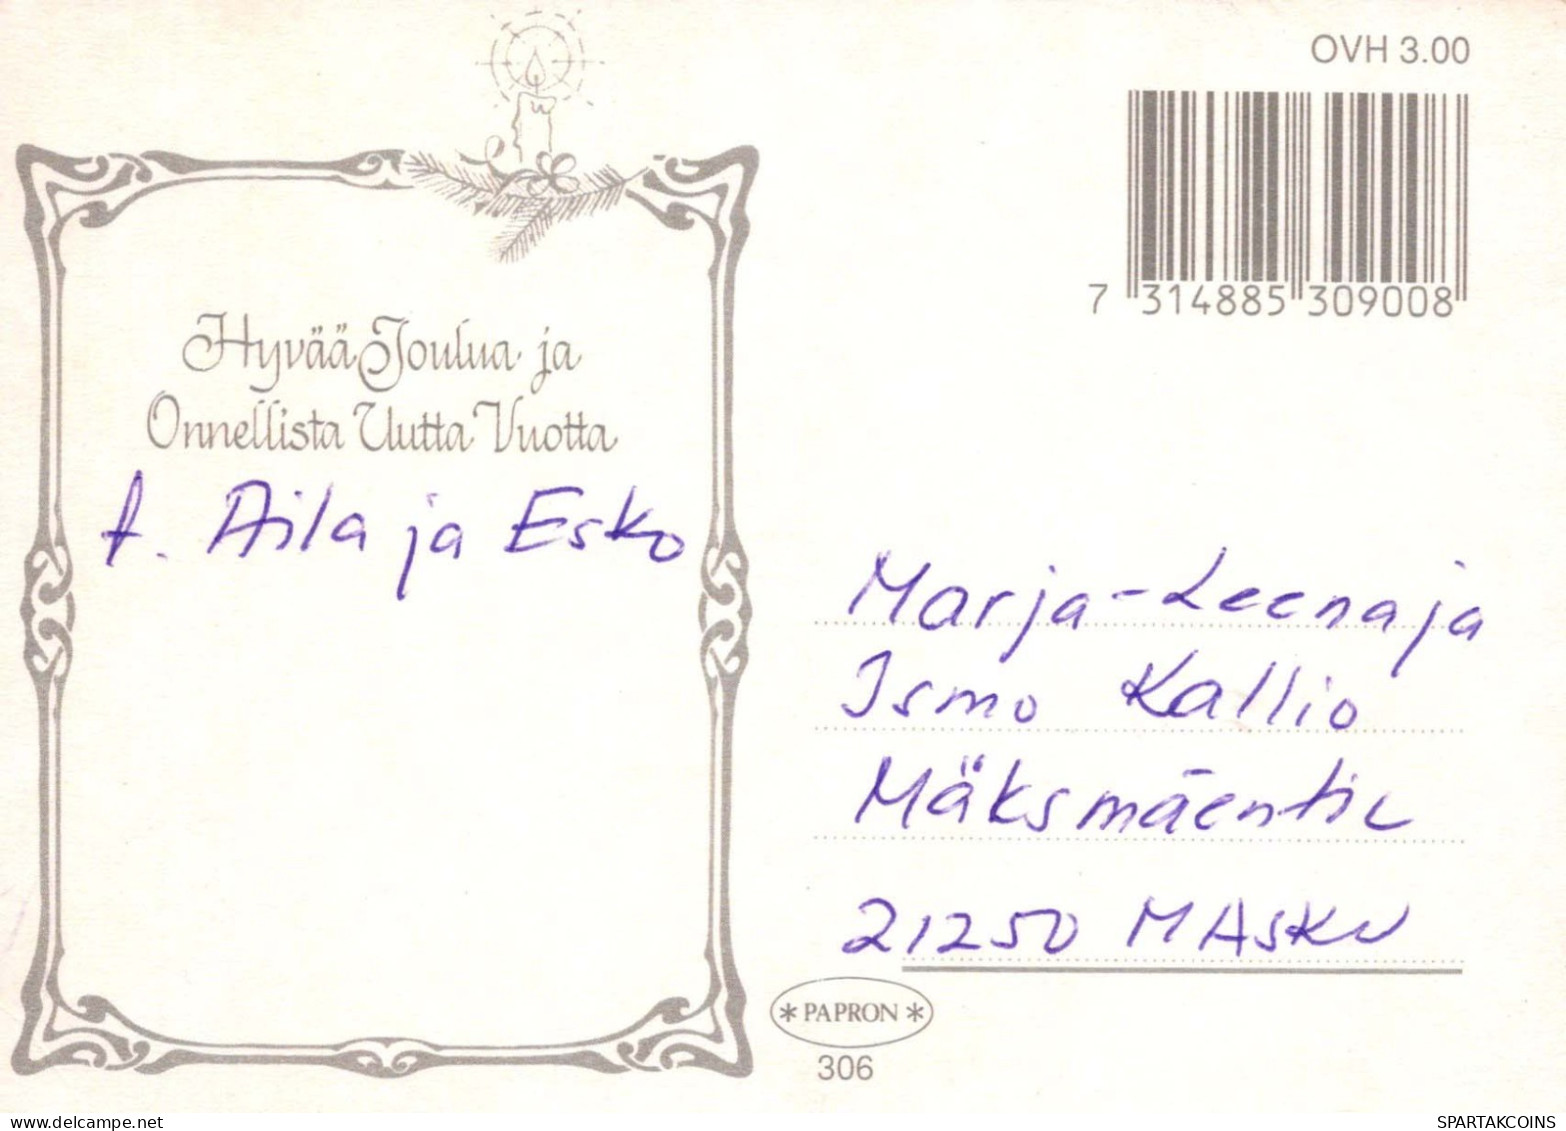 OVH 3.00
7 314885 309008
Hyvää Joulua ja
Onnellista Uutta Vuotta
t. Aila ja Esko
Marja-Leena ja
Ismo Kallio
Mäksmäentie
21250 MASKU
* PAPRON *
306
SPARTAKCOINS